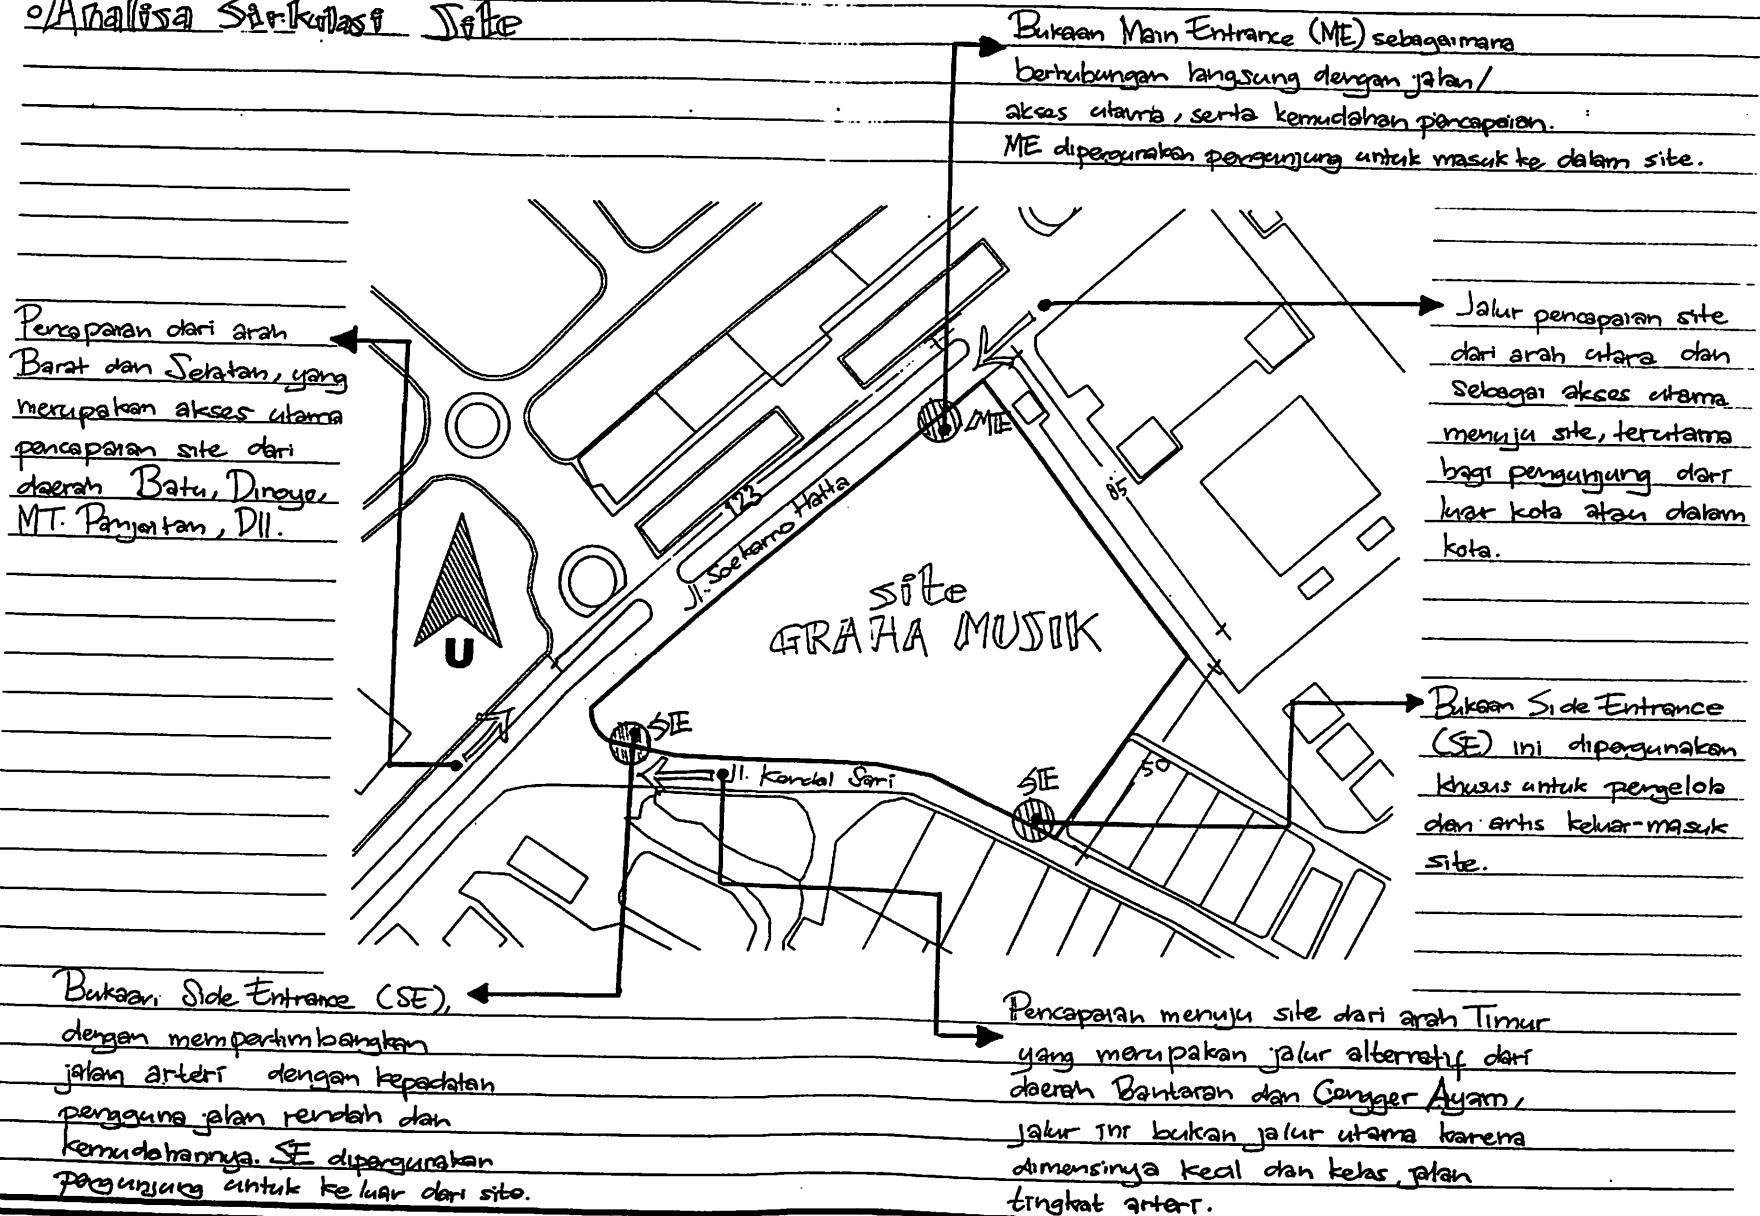 Analisa Sirkulasi Site
Bukaan Main Entrance (ME) sebagaimana
berhubungan langsung dengan jalan/
akses utama, serta kemudahan pencapaian.
ME dipergunakan pengunjung untuk masuk ke dalam site.
Pencapaian dari arah
Barat dan Selatan, yang
merupakan akses utama
pencapaian site dari
daerah Batu, Dinoyo,
MT. Panjaitan, Dll.
Jalur pencapaian site
dari arah utara dan
sebagai akses utama
menuju site, terutama
bagi pengunjung dari
luar kota atau dalam
kota.
ME
123
85
Jl. Soekarno Hatta
site
GRAHA MUSIK
U
SE
Jl. Kendal Sari
SE
50
Bukaan Side Entrance
(SE) ini dipergunakan
khusus untuk pengelola
dan artis keluar-masuk
site.
Bukaan Side Entrance (SE),
dengan mempertimbangkan
jalan arteri dengan kepadatan
pengguna jalan rendah dan
kemudahannya. SE dipergunakan
pengunjung untuk keluar dari site.
Pencapaian menuju site dari arah Timur
yang merupakan jalur alternatif dari
daerah Bantaran dan Cengger Ayam,
jalur ini bukan jalur utama karena
dimensinya kecil dan kelas jalan
tingkat arteri.